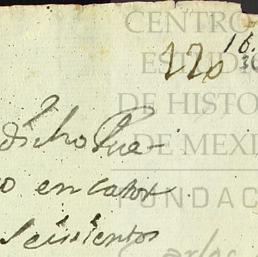 CENTRO
ESTUDIO
DE HISTO
DE MEXI
FUNDAC
220
16.
dicho Pue-
o en cator
Seisientos
Carlos